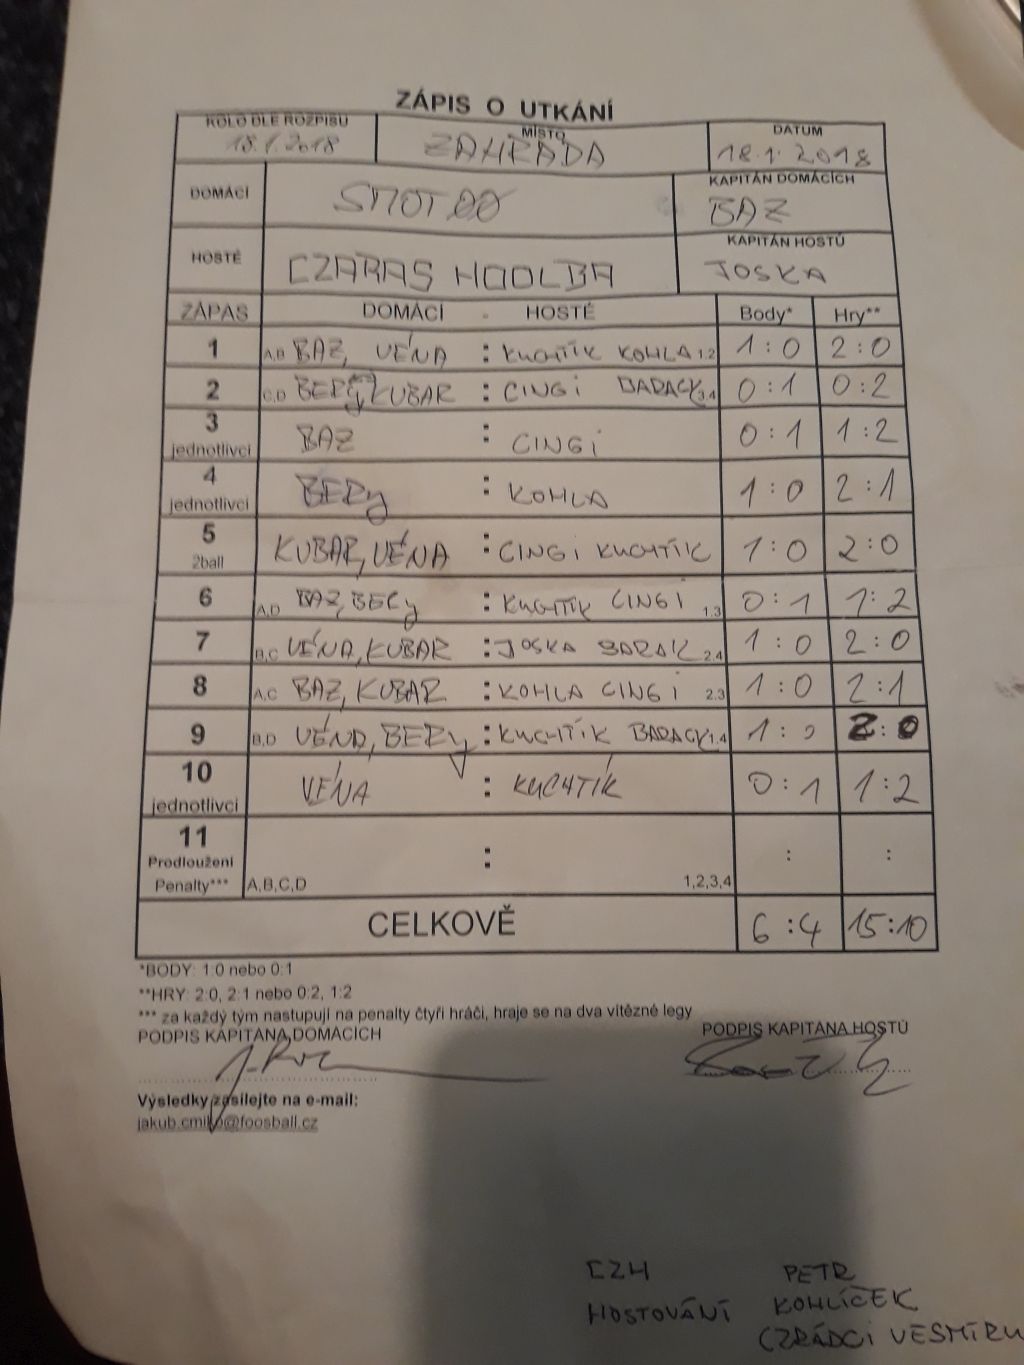 ZÁPIS O UTKÁNÍ
KOLO DLE ROZPISU MÍSTO DATUM
18.1.2018 ZAHRADA 18.1.2018
DOMÁCÍ KAPITÁN DOMÁCÍCH
BAZ
HOSTÉ CZARAS HOOLBA KAPITÁN HOSTŮ
JOSKA
ZÁPAS DOMÁCÍ - HOSTÉ Body* Hry**
1 A,B BAZ, VÉNA : KUCHTÍK KOHLA 1,2 1:0 2:0
2 C,D BERY, KUBAR : CINGI BARACK 3,4 0:1 0:2
3 jednotlivci BAZ : CINGI 0:1 1:2
4 jednotlivci BERY : KOHLA 1:0 2:1
5 2ball KUBAR, VÉNA : CINGI KUCHTÍK 1:0 2:0
6 A,D BAZ, BERY : KUCHTÍK CINGI 1,3 0:1 1:2
7 B,C VÉNA, KUBAR : JOSKA BARAK 2,4 1:0 2:0
8 A,C BAZ, KUBAR : KOHLA CINGI 2,3 1:0 2:1
9 B,D VÉNA, BERY : KUCHTÍK BARACK 1,4 1:0 2:0
10 jednotlivci VÉNA : KUCHTÍK 0:1 1:2
11 Prodloužení : : :
Penalty*** A,B,C,D 1,2,3,4
CELKOVĚ 6:4 15:10
*BODY: 1:0 nebo 0:1
**HRY: 2:0, 2:1 nebo 0:2, 1:2
*** za každý tým nastupují na penalty čtyři hráči, hraje se na dva vítězné legy
PODPIS KAPITÁNA DOMÁCÍCH PODPIS KAPITÁNA HOSTŮ
Výsledky zasílejte na e-mail:
@foosball.cz
CZH PETR
HOSTOVÁNÍ KOHLÍČEK
(ZRÁDCI VESMÍRU